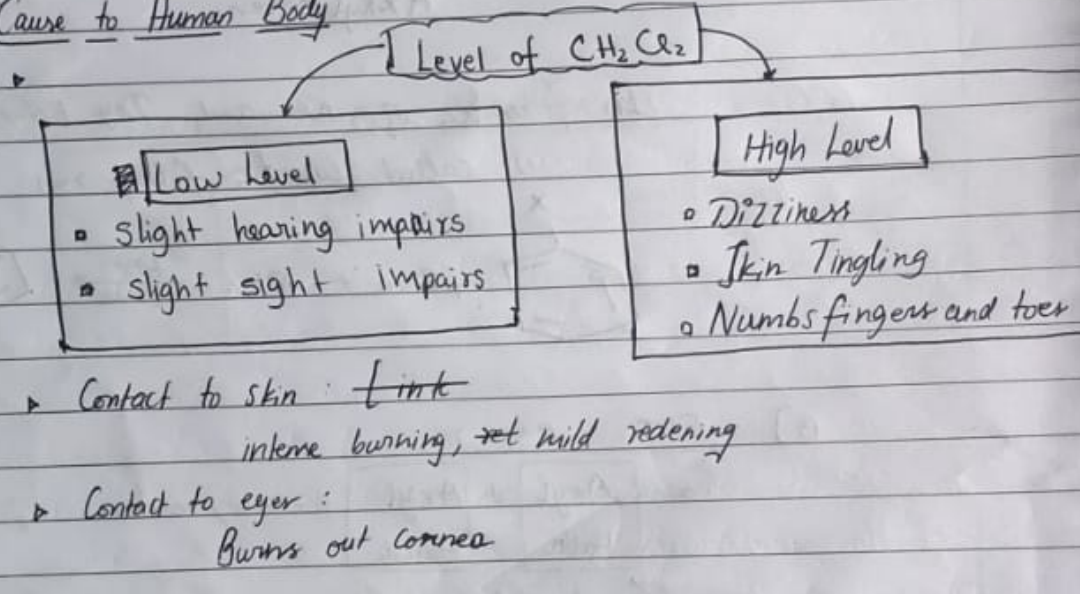 Cause to Human Body
Level of CH₂Cl₂
Low Level
slight hearing impairs
slight sight impairs
High Level
Dizziness
Skin Tingling
Numbs fingers and toes
Contact to skin :
intense burning, mild redening
Contact to eyes :
Burns out cornea